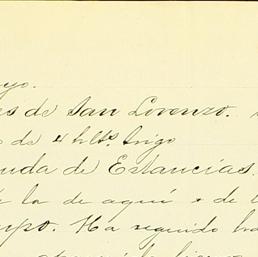 yo.
es de San Lorenzo.
o de 4 hlts. trigo
uda de Estancias.
la de aquí o de
mpo. Ha seguido